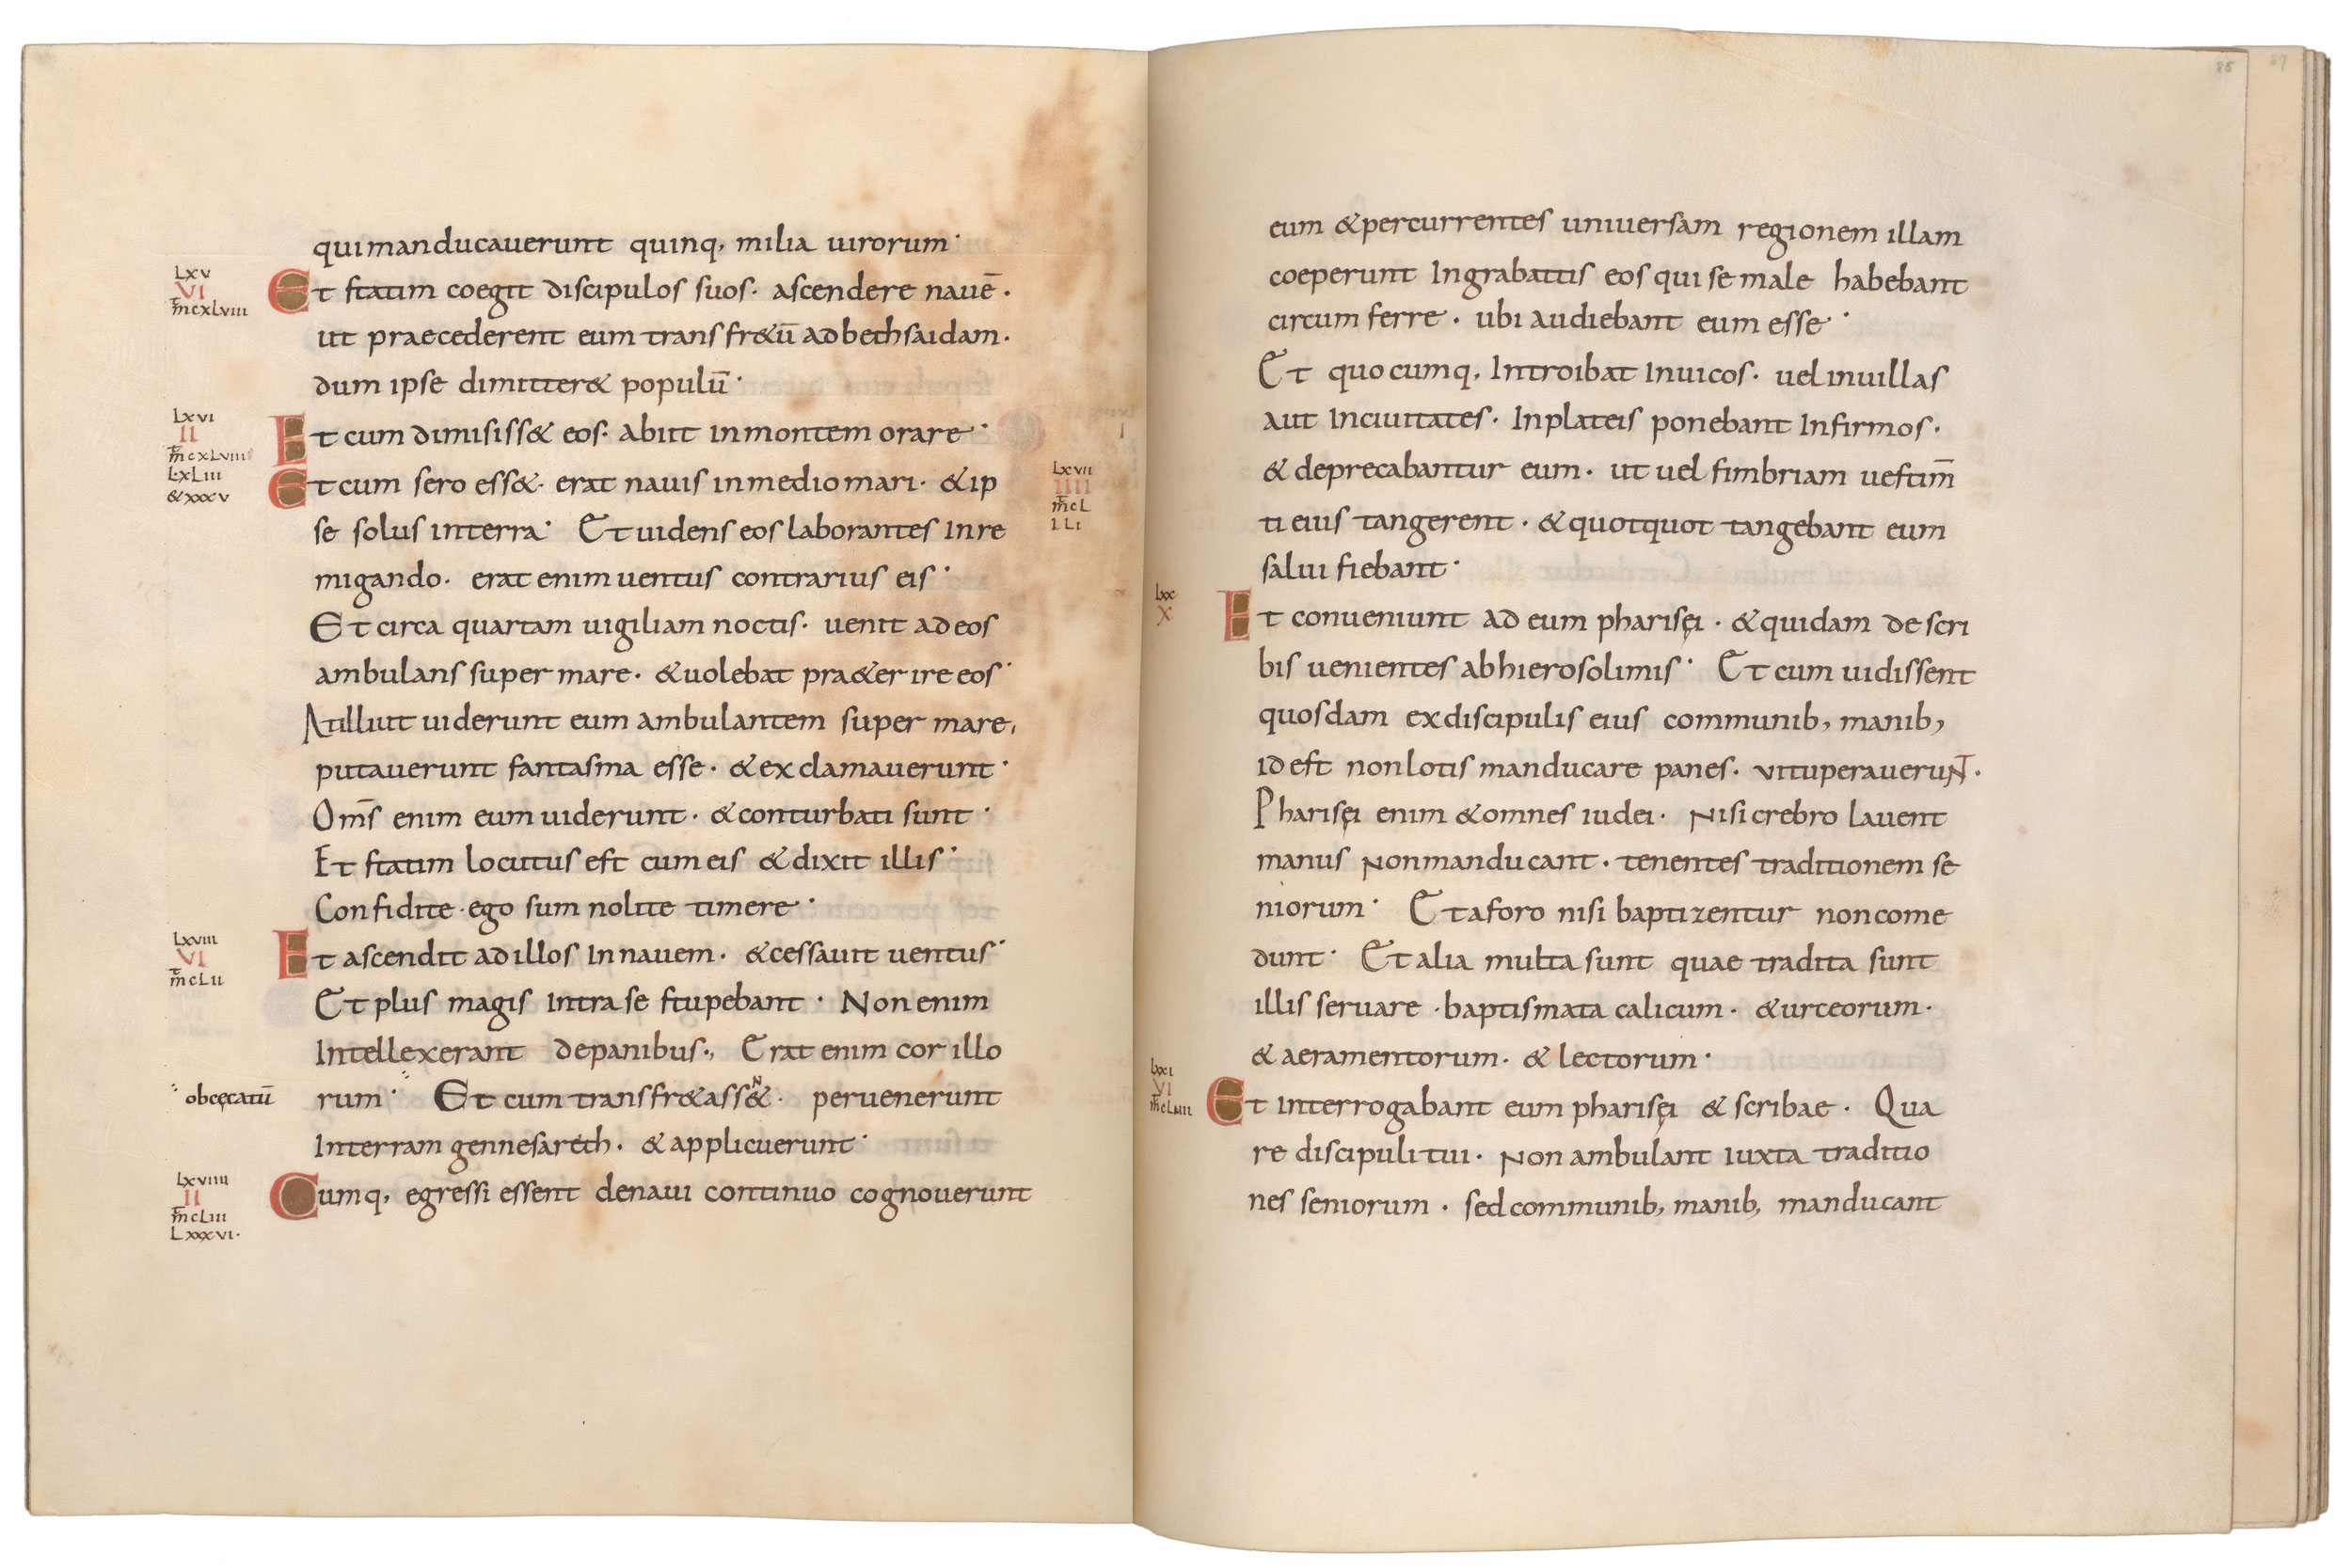 qui manducauerunt quinq, milia uirorum·
LXV
VI
m̄t cxLviii
Et statim coegit discipulos suos· ascendere nauē·
ut praecederent eum trans fr&ū ad bethsaidam·
dum ipse dimitter& populū·
LXVI
II
m̄t cxLviiii
LxLiii
&xxxv
Et cum dimisiss& eos· abiit in montem orare·
Et cum sero ess&· erat nauis in medio mari· & ip
LXVII
IIII
m̄t cL
I LI
se solus in terra· Et uidens eos laborantes in re
migando· erat enim uentus contrarius eis·
Et circa quartam uigiliam noctis· uenit ad eos
ambulans super mare· & uolebat pra&erire eos·
At illi ut uiderunt eum ambulantem super mare,
putauerunt fantasma esse· & exclamauerunt·
Om̄s enim eum uiderunt· & conturbati sunt·
Et statim locutus est cum eis & dixit illis·
Confidite· ego sum nolite timere·
LXVIII
VI
m̄t cLii
Et ascendit ad illos in nauem· & cessauit uentus·
Et plus magis intra se stupebant· Non enim
Intellexerant de panibus., Erat enim cor illo
obcęcatū
rum· Et cum transfr&ass&n· peruenerunt
In terram gennesareth· & applicuerunt·
LXVIIII
II
m̄t cLiii
Lxxxvi·
Cumq, egressi essent de naui continuo cognouerunt
85
87
eum & percurrentes uniuersam regionem illam
coeperunt In grabattis eos qui se male habebant
circum ferre· ubi audiebant eum esse·
Et quocumq, Introibat In uicos· uel in uillas
aut In ciuitates· In plateis ponebant Infirmos·
& deprecabantur eum· ut uel fimbriam uestim̄
ti eius tangerent· & quotquot tangebant eum
salui fiebant·
LXX
X
Et conueniunt ad eum pharisęi· & quidam de scri
bis uenientes ab hierosolimis· Et cum uidissent
quosdam ex discipulis eius communib, manib,
id est non lotis manducare panes· vituperauerunt·
Pharisęi enim & omnes iudei· Nisi crebro lauent
manus Non manducant· tenentes traditionem se
niorum· Et a foro nisi baptizentur non come
dunt· Et alia multa sunt quae tradita sunt
illis seruare· baptismata calicum· & urceorum·
& aeramentorum· & lectorum·
LXXI
VI
m̄t cLiiii
Et interrogabant eum pharisęi & scribae· Qua
re discipuli tui· Non ambulant iuxta traditio
nes seniorum· sed communib, manib, manducant